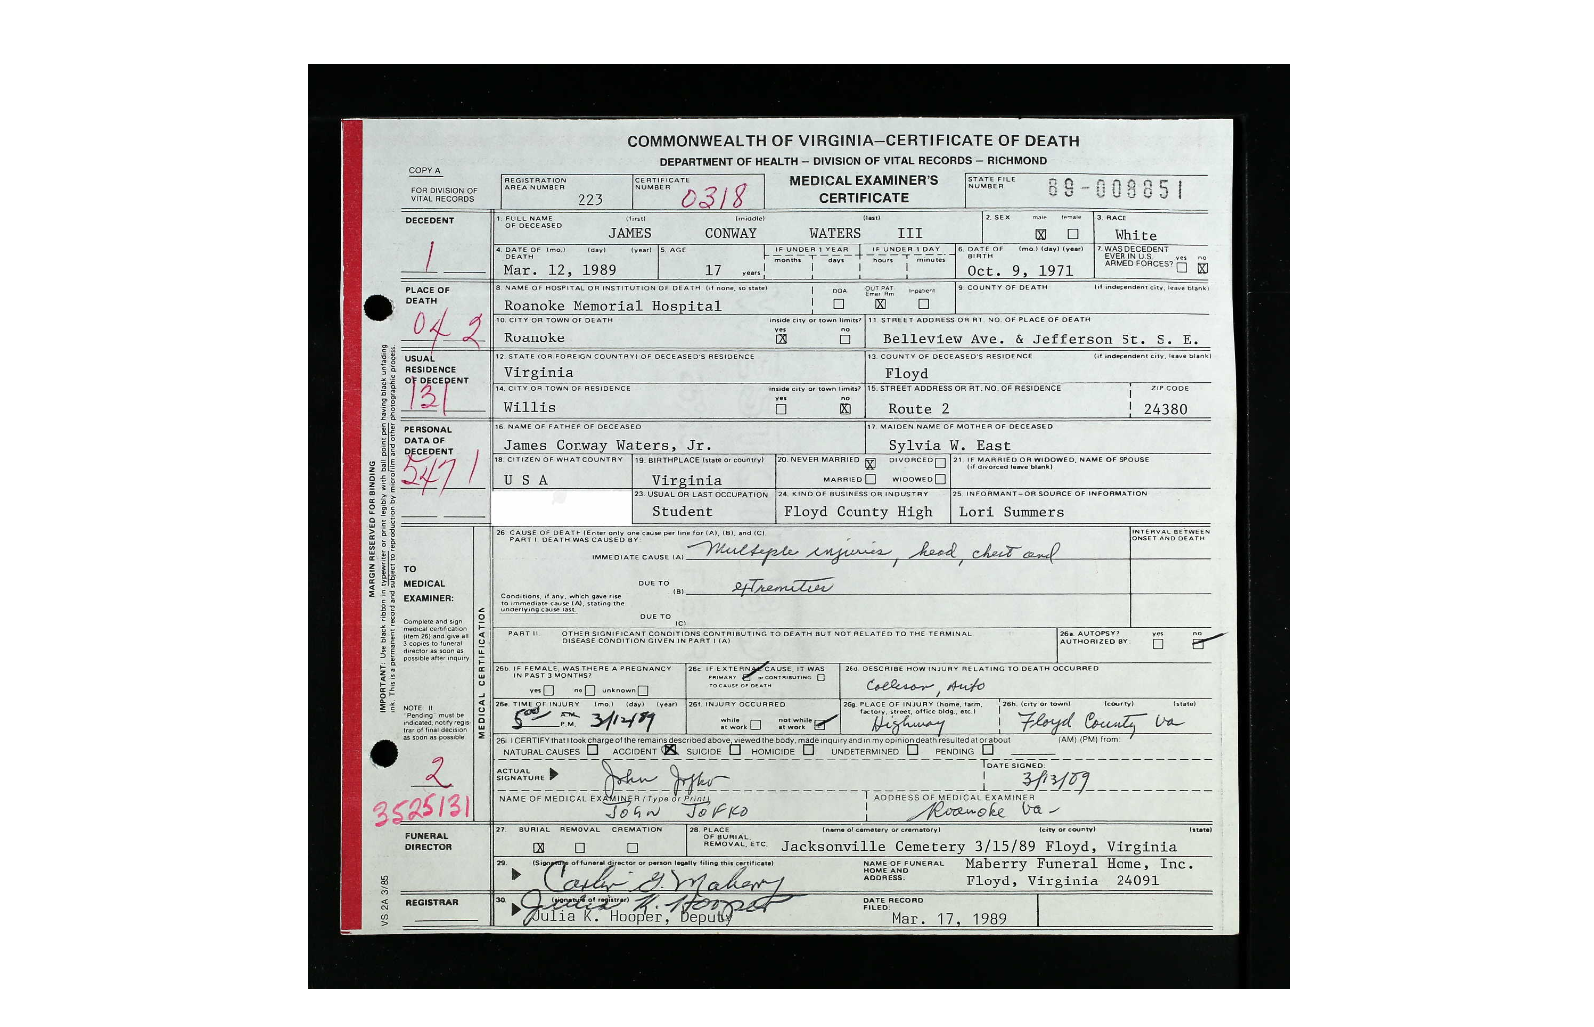 COMMONWEALTH OF VIRGINIA—CERTIFICATE OF DEATH
DEPARTMENT OF HEALTH – DIVISION OF VITAL RECORDS – RICHMOND
COPY A
FOR DIVISION OF VITAL RECORDS
REGISTRATION AREA NUMBER 223
CERTIFICATE NUMBER 0318
MEDICAL EXAMINER'S CERTIFICATE
STATE FILE NUMBER 89-008851
DECEDENT
1
1. FULL NAME OF DECEASED (first) (middle) (last)
JAMES CONWAY WATERS III
2. SEX male female
3. RACE
White
4. DATE OF DEATH (mo.) (day) (year)
Mar. 12, 1989
5. AGE
17 years
IF UNDER 1 YEAR months days
IF UNDER 1 DAY hours minutes
6. DATE OF BIRTH (mo.) (day) (year)
Oct. 9, 1971
7. WAS DECEDENT EVER IN U.S. ARMED FORCES? yes no
PLACE OF DEATH
042
8. NAME OF HOSPITAL OR INSTITUTION OF DEATH (if none, so state)
Roanoke Memorial Hospital
DOA OUT PAT. Emer Rm Inpatient
9. COUNTY OF DEATH (if independent city, leave blank)
10. CITY OR TOWN OF DEATH inside city or town limits? yes no
Roanoke
11. STREET ADDRESS OR RT. NO. OF PLACE OF DEATH
Belleview Ave. & Jefferson St. S. E.
USUAL RESIDENCE OF DECEDENT
131
12. STATE (OR FOREIGN COUNTRY) OF DECEASED'S RESIDENCE
Virginia
13. COUNTY OF DECEASED'S RESIDENCE (if independent city, leave blank)
Floyd
14. CITY OR TOWN OF RESIDENCE inside city or town limits? yes no
Willis
15. STREET ADDRESS OR RT. NO. OF RESIDENCE
Route 2
ZIP CODE
24380
PERSONAL DATA OF DECEDENT
5471
16. NAME OF FATHER OF DECEASED
James Conway Waters, Jr.
17. MAIDEN NAME OF MOTHER OF DECEASED
Sylvia W. East
18. CITIZEN OF WHAT COUNTRY
U S A
19. BIRTHPLACE (state or country)
Virginia
20. NEVER MARRIED DIVORCED
MARRIED WIDOWED
21. IF MARRIED OR WIDOWED, NAME OF SPOUSE (if divorced leave blank)
23. USUAL OR LAST OCCUPATION
Student
24. KIND OF BUSINESS OR INDUSTRY
Floyd County High
25. INFORMANT—OR SOURCE OF INFORMATION
Lori Summers
MARGIN RESERVED FOR BINDING
IMPORTANT: Use black ribbon in typewriter or print legibly with ball point pen having black unfading ink. This is a permanent record and subject to reproduction by microfilm and other photographic process.
TO MEDICAL EXAMINER:
Complete and sign medical certification (item 26) and give all 3 copies to funeral director as soon as possible after inquiry.
NOTE: If "Pending" must be indicated, notify registrar of final decision as soon as possible.
2
3525131
MEDICAL CERTIFICATION
26. CAUSE OF DEATH (Enter only one cause per line for (A), (B), and (C)
PART I. DEATH WAS CAUSED BY:
INTERVAL BETWEEN ONSET AND DEATH
IMMEDIATE CAUSE (A) Multiple injuries, head, chest and
DUE TO (B) extremities
Conditions, if any, which gave rise to immediate cause (A), stating the underlying cause last.
DUE TO (C)
PART II. OTHER SIGNIFICANT CONDITIONS CONTRIBUTING TO DEATH BUT NOT RELATED TO THE TERMINAL DISEASE CONDITION GIVEN IN PART I (A)
26a. AUTOPSY? AUTHORIZED BY: yes no
26b. IF FEMALE, WAS THERE A PREGNANCY IN PAST 3 MONTHS?
yes no unknown
26c. IF EXTERNAL CAUSE, IT WAS
PRIMARY or CONTRIBUTING
TO CAUSE OF DEATH
26d. DESCRIBE HOW INJURY RELATING TO DEATH OCCURRED
Collison, Auto
26e. TIME OF INJURY (mo.) (day) (year)
5:00 A.M. P.M. 3/12/89
26f. INJURY OCCURRED
while at work not while at work
26g. PLACE OF INJURY (home, farm, factory, street, office bldg., etc.)
Highway
26h. (city or town) (county) (state)
Floyd County Va
26i. I CERTIFY that I took charge of the remains described above, viewed the body, made inquiry and in my opinion death resulted at or about (AM) (PM) from:
NATURAL CAUSES ACCIDENT SUICIDE HOMICIDE UNDETERMINED PENDING
ACTUAL SIGNATURE John Jofko
DATE SIGNED:
3/13/89
NAME OF MEDICAL EXAMINER (Type or Print)
JOHN JOFKO
ADDRESS OF MEDICAL EXAMINER
Roanoke Va -
FUNERAL DIRECTOR
27. BURIAL REMOVAL CREMATION
28. PLACE OF BURIAL, REMOVAL, ETC. (name of cemetery or crematory) (city or county) (state)
Jacksonville Cemetery 3/15/89 Floyd, Virginia
29. (Signature of funeral director or person legally filing this certificate)
NAME OF FUNERAL HOME AND ADDRESS:
Maberry Funeral Home, Inc.
Floyd, Virginia 24091
REGISTRAR
30. (signature of registrar)
Julia K. Hooper
Julia K. Hooper, Deputy
DATE RECORD FILED:
Mar. 17, 1989
VS 2A 3/85